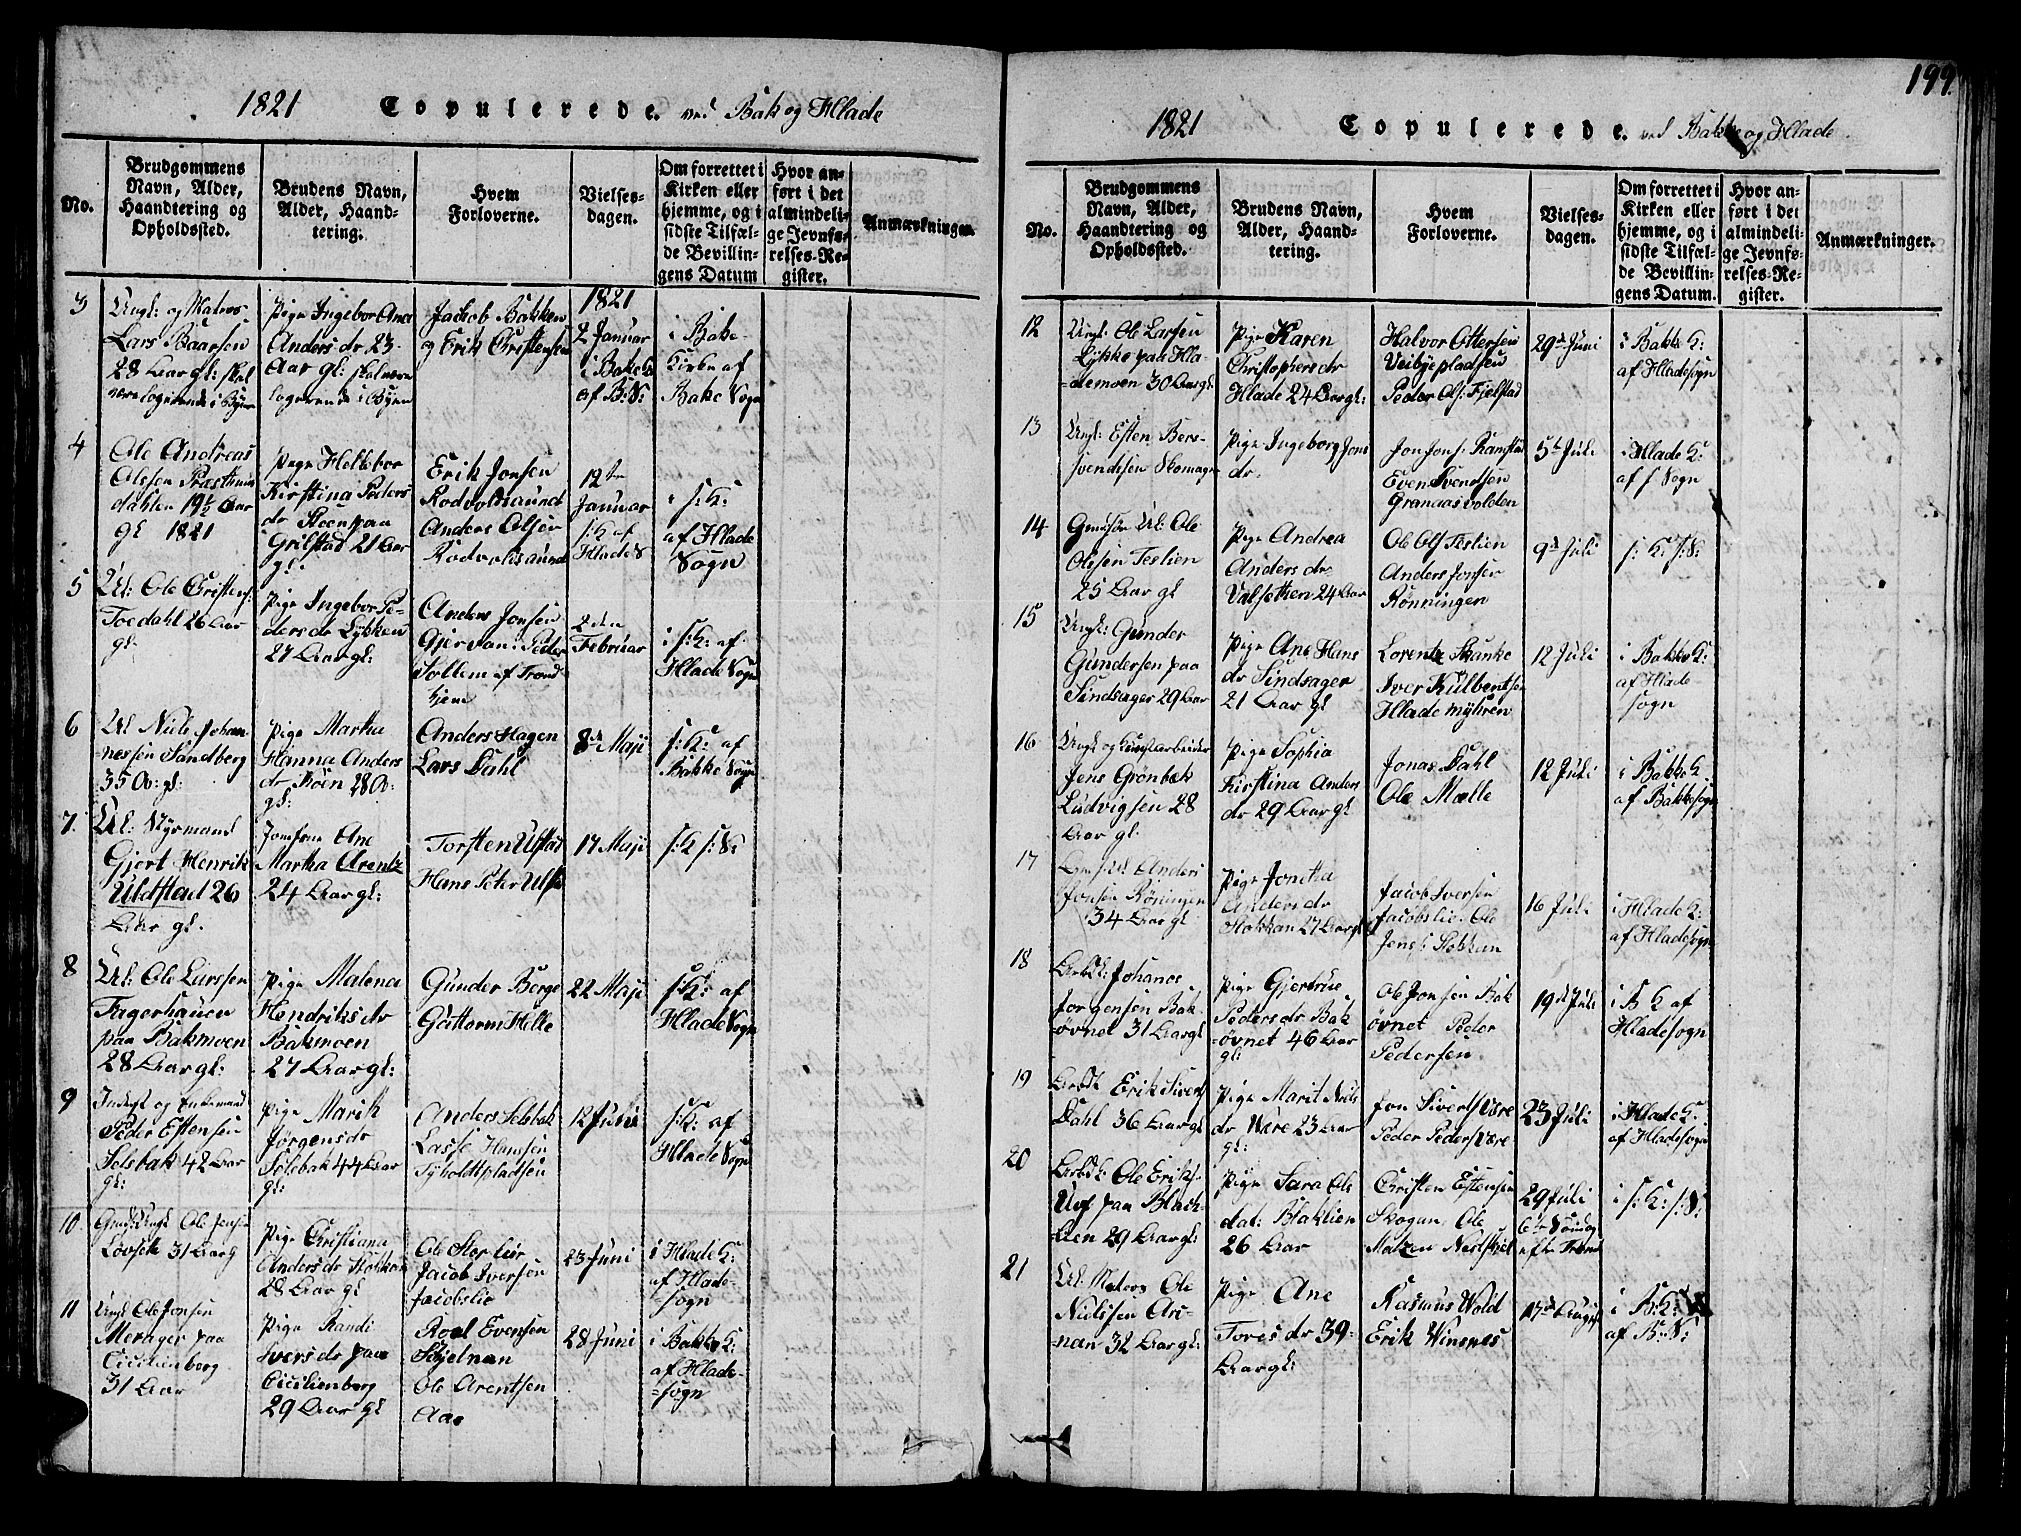 1821 Copulerede. ved Bak og Hlade
No.
Brudgommens
Navn, Alder,
Haandtering og
Opholdssted.
Brudens Navn,
Alder, Haand-
tering.
Hvem
Forloverne.
Vielses-
dagen.
Om forrettet i
Kirken eller
hjemme, og i
sidste Tilfæl-
de Bevillin-
gens Datum
Hvor an-
ført i det
almindeli-
ge Jevnfø-
relses-Re-
gister.
Anmærkninger.
3
Ungk: og Matros
Lars Baarsen
28 Aar gl: skal
være logerende i Byen
Pige Ingebor Ane
Anders dr 23
Aar gl: skal være
logerende i Byen
Jachob Bakken
og Erik Cristensen
1821
2 Januar
i Bake K
af B: S:
i Bake
Kirke af
Bake Sogn
4
Ole Andreas
Olssen Præsthuus
dahlen 19½ Aar
gl 1821
Pige Helkebor
Kirstina Peders
dr Steen paa
Grilstad 21 Aar
gl:
Erik Jonsen
Rodvoldsaund
Anders Olsen
Rodvoldsaund
12te
Januar
s: K af
Hlade S
i s: K:
af Hlade
Sogn
5
Uk: Ole Cristens:
Toedahl 26 Aar
gl:
Pige Ingebor Pe-
ders dr Lykken
27 Aar gl:
Anders Jonsen
Gjervan: Peder
Sollem af Trond
hjem
2den
Februar
i s: K: af
Hlade Sogn
6
Uk Niels Johan-
nessen Sandberg
35 A: gl:
Pige Martha
Hanna Anders
dr Moen 28 A:
gl:
Anders Hagen
Lars Dahl
8de Maji
s: K: af
Bakke Sogn
7.
Uk: Styrmand
Gjert Henrik
Uldstad 26
Aar gl.
Jomfrue Ane
Martha Arentz
24 Aar gl:
Torsten Ulstad
Hans Peter Ulst
17 Maji
s: K s: S:
8
Uk: Ole Larssen
Fagerhauen
paa Bakmoen
28 Aar gl:
Pige Malena
Hendriks dr
Bakmoen
27 Aar gl:
Gunder Berge
Guttorm Helle
22 Maji
s: K: af
Hlade Sogn
9
Indegst og Enkemand
Peder Estensen
Selsbak 42 Aar
gl:
Pige Marith
Jørgens dr
Selsbak 44 Aar
gl:
Anders Selsbak
Lasse Hansen
Tyholdtspladsen
12 Junii
s: K: af
Hlade Sogn
10
Gmds Ungk Ole Jensen
Løvset 31 Aar g
Pige Christiana
Anders dr Stokkan
28 Aar gl
Ole Storlier
Jacob Iversen
Jacobslie
23 Juni
i Hlade K:
af Hlade-
sogn
11
Ungk Ole Jonsen
Merager paa
Cicilienborg
31 Aar
Pige Randi
Ivers dr paa
Cicilienborg
29 Aar gl
Roal Evensen
Schjelnan
Ole Arentsen
Aae
28 Juni
i Bakke K:
af Hlade-
=sogn
199.
1821 Copulerede. ved Bakke og Hlade.
No.
Brudgommens
Navn, Alder,
Haandtering og
Opholdssted.
Brudens Navn,
Alder, Haand-
tering.
Hvem
Forloverne.
Vielses-
dagen.
Om forrettet i
Kirken eller
hjemme, og i
sidste Tilfæl-
de Bevillin-
gens Datum.
Hvor an-
ført i det
almindeli-
ge Jevnfø-
relses-Re-
gister.
Anmærkninger.
12
Ungk: Ole Larsen
Lykke paa Hla-
=demoen 30 Aar gl:
Pige Karen
Christophers dr
Hlade 24 Aar gl:
Halvor Ottersen
Veibyepladsen
Peder Ols: Fjelstad
29d Juni
i Bakke K:
af Hladesogn
13
Ungk: Esten Ber-
svendsen Skomager
Pige Ingeborg Jons
dr.
Jon Jons: Ranstad
Even Svendsen
Granaasvolden
5te Juli
i Hlade K:
af s Sogn
14
Gmdsøn Uk: Ole
Olesen Teslien
25 Aar gl
Pige Andrea
Anders dr
Valsethen 24 Aar
Ole Ols Teslien
Anders Jonsen
Rønningen
9d Juli
s: K: s: S:
15
Ungk: Gunder
Gundersen paa
Sindsager 29 Aar
Pige Ane Hans
dr Sindsager
21 Aar gl
Lorentz Skanke
Iver Külbentsen
Hlademyhren
12 Juli
i Bakke K:
af Hlade-
sogn
16
Ungk og Huustarbeider
Jens Grönbæk
Ludvigsen 28
Aar gl:
Pige Sophia
Kirstina Anders
dr 29 Aar gl
Jonas Dahl
Ole Mælle
12 Juli
i Bakke K.
af Bakkesogn
17
Anders
Jonsen Röningen
34 Aar gl
Pige Jonetta
Anders dr
Stokkan 27 Aar gl
Jacob Iversen
Jacobslie. Ole
Jens: Stokkan
16 Juli
i Hlade K:
af Hladesogn
18
Arbdk: Johanes
Jørgensen Bak-
=øvnet 31 Aar gl
Pige Gjertrue
Peders dr Bak
=øvnet 46 Aar
gl:
Ole Jonsen Bak
øvnet Peder
Pedersen
19d Juli
i B K af
Hladesogn
19
Arbdk Erik Siverts
Dahl 36 Aar gl
Pige Marit Niels
dr Være 23 Aar
gl:
Jon Siverts Være
Peder Peders Være
23 Juli
i Hlade K:
af Hladesogn
20
Arbdk: Ole Eriks:
Uvf paa Blak-
lien 29 Aar gl:
Pige Sara Ole
dat: Blaklien
26 Aar
Cristen Estensen
Skogan Ole
Matzen Nestkiel
29 Juli
6te Søndag
efter Trinit
i s: K: s: S:
21
Uk: Matros Ole
Nielssen Ari-
nan 32 Aar gl:
Pige Ane
Tores dr 39-
Aar gl:
Rasmus Wold
Erik Winsnes
17d August
i B: K:
af B: S: